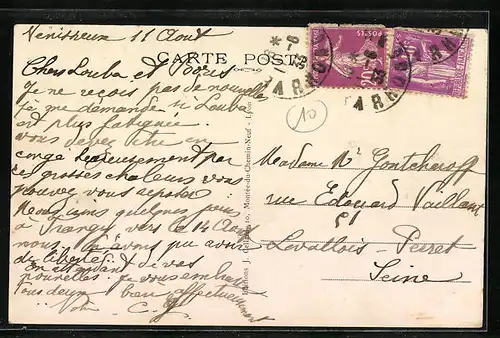 Vénissieux 11 Aout
CARTE POSTALE
Chers Louba et Boris
Je ne reçois pas de nouvelles
je me demande si Louba
est plus fatiguée.
vous devez être en
congé heureusement par
ces grosses chaleurs vous
pouvez vous reposer
Nous irons quelques jours
à Trangy vers le 14 Aout
nous avons pu avoir
de libertés.
En attendant de vos
nouvelles. Je vous embrasse
tous deux bien affectueusement
Madame Mr Gontcharoff
rue Edouard Vaillant
51
Levallois-Perret
Seine
10
Editions J. Montée du Chemin-Neuf - Lyon
POSTES
20c